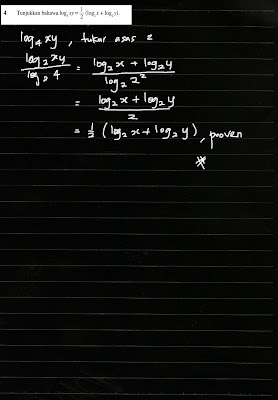 4 Tunjukkan bahawa log₄ xy = 1/2 (log₂ x + log₂ y).
log₄ xy , tukar asas 2
log₂ xy / log₂ 4 = log₂ x + log₂ y / log₂ 2²
= log₂ x + log₂ y / 2
= 1/2 (log₂ x + log₂ y) , proven